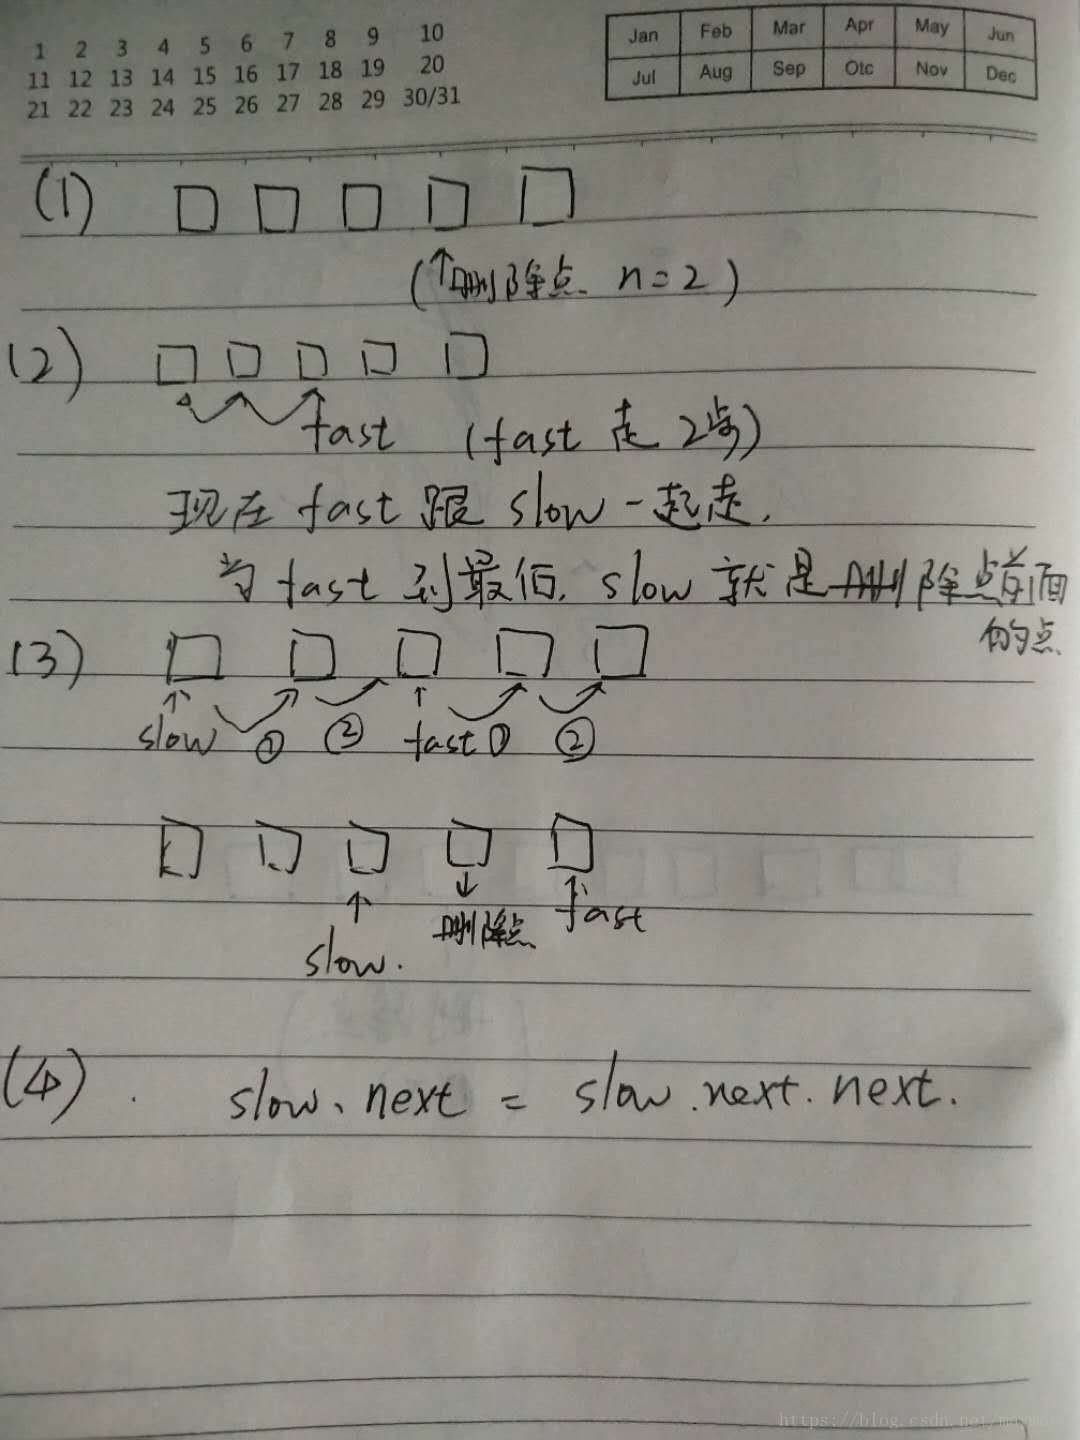 1 2 3 4 5 6 7 8 9 10
11 12 13 14 15 16 17 18 19 20
21 22 23 24 25 26 27 28 29 30/31
Jan Feb Mar Apr May Jun
Jul Aug Sep Otc Nov Dec
(1)
(↑删除点 n=2)
(2)
fast (fast 走 2步)
现在 fast 跟 slow 一起走.
当 fast 到最后, slow 就是删除点前面
的点
(3)
slow ① ② fast ① ②
slow. 删除点 fast
(4). slow.next = slow.next.next.
https://blog.csdn.net/